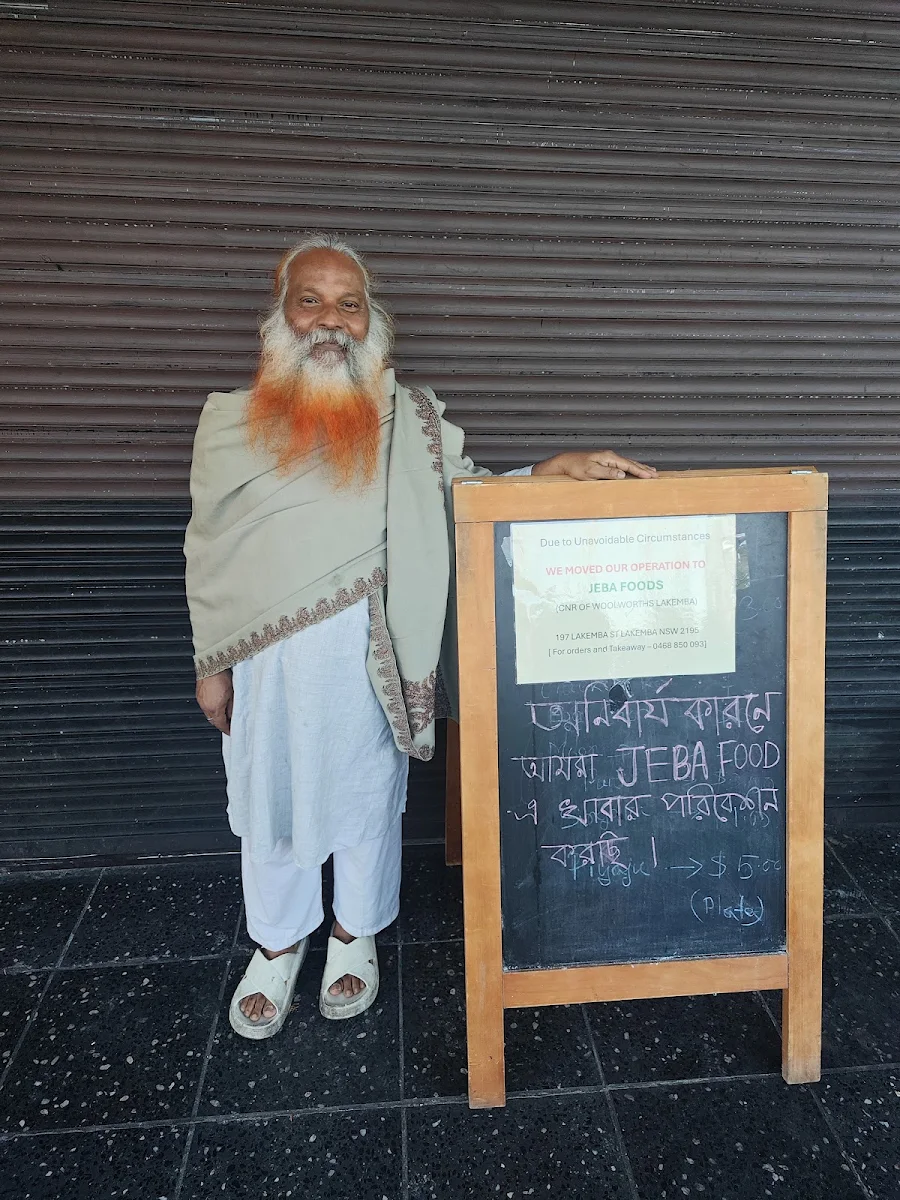 Due to Unavoidable Circumstances
WE MOVED OUR OPERATION TO
JEBA FOODS
(CNR OF WOOLWORTHS LAKEMBA)
197 LAKEMBA ST LAKEMBA NSW 2195
[ For orders and Takeaway - 0468 850 093]
অনিবার্য কারনে
আমরা JEBA FOOD
এ খাবার পরিবেশন
করছি ।
→ $ 5.00
(Plate)